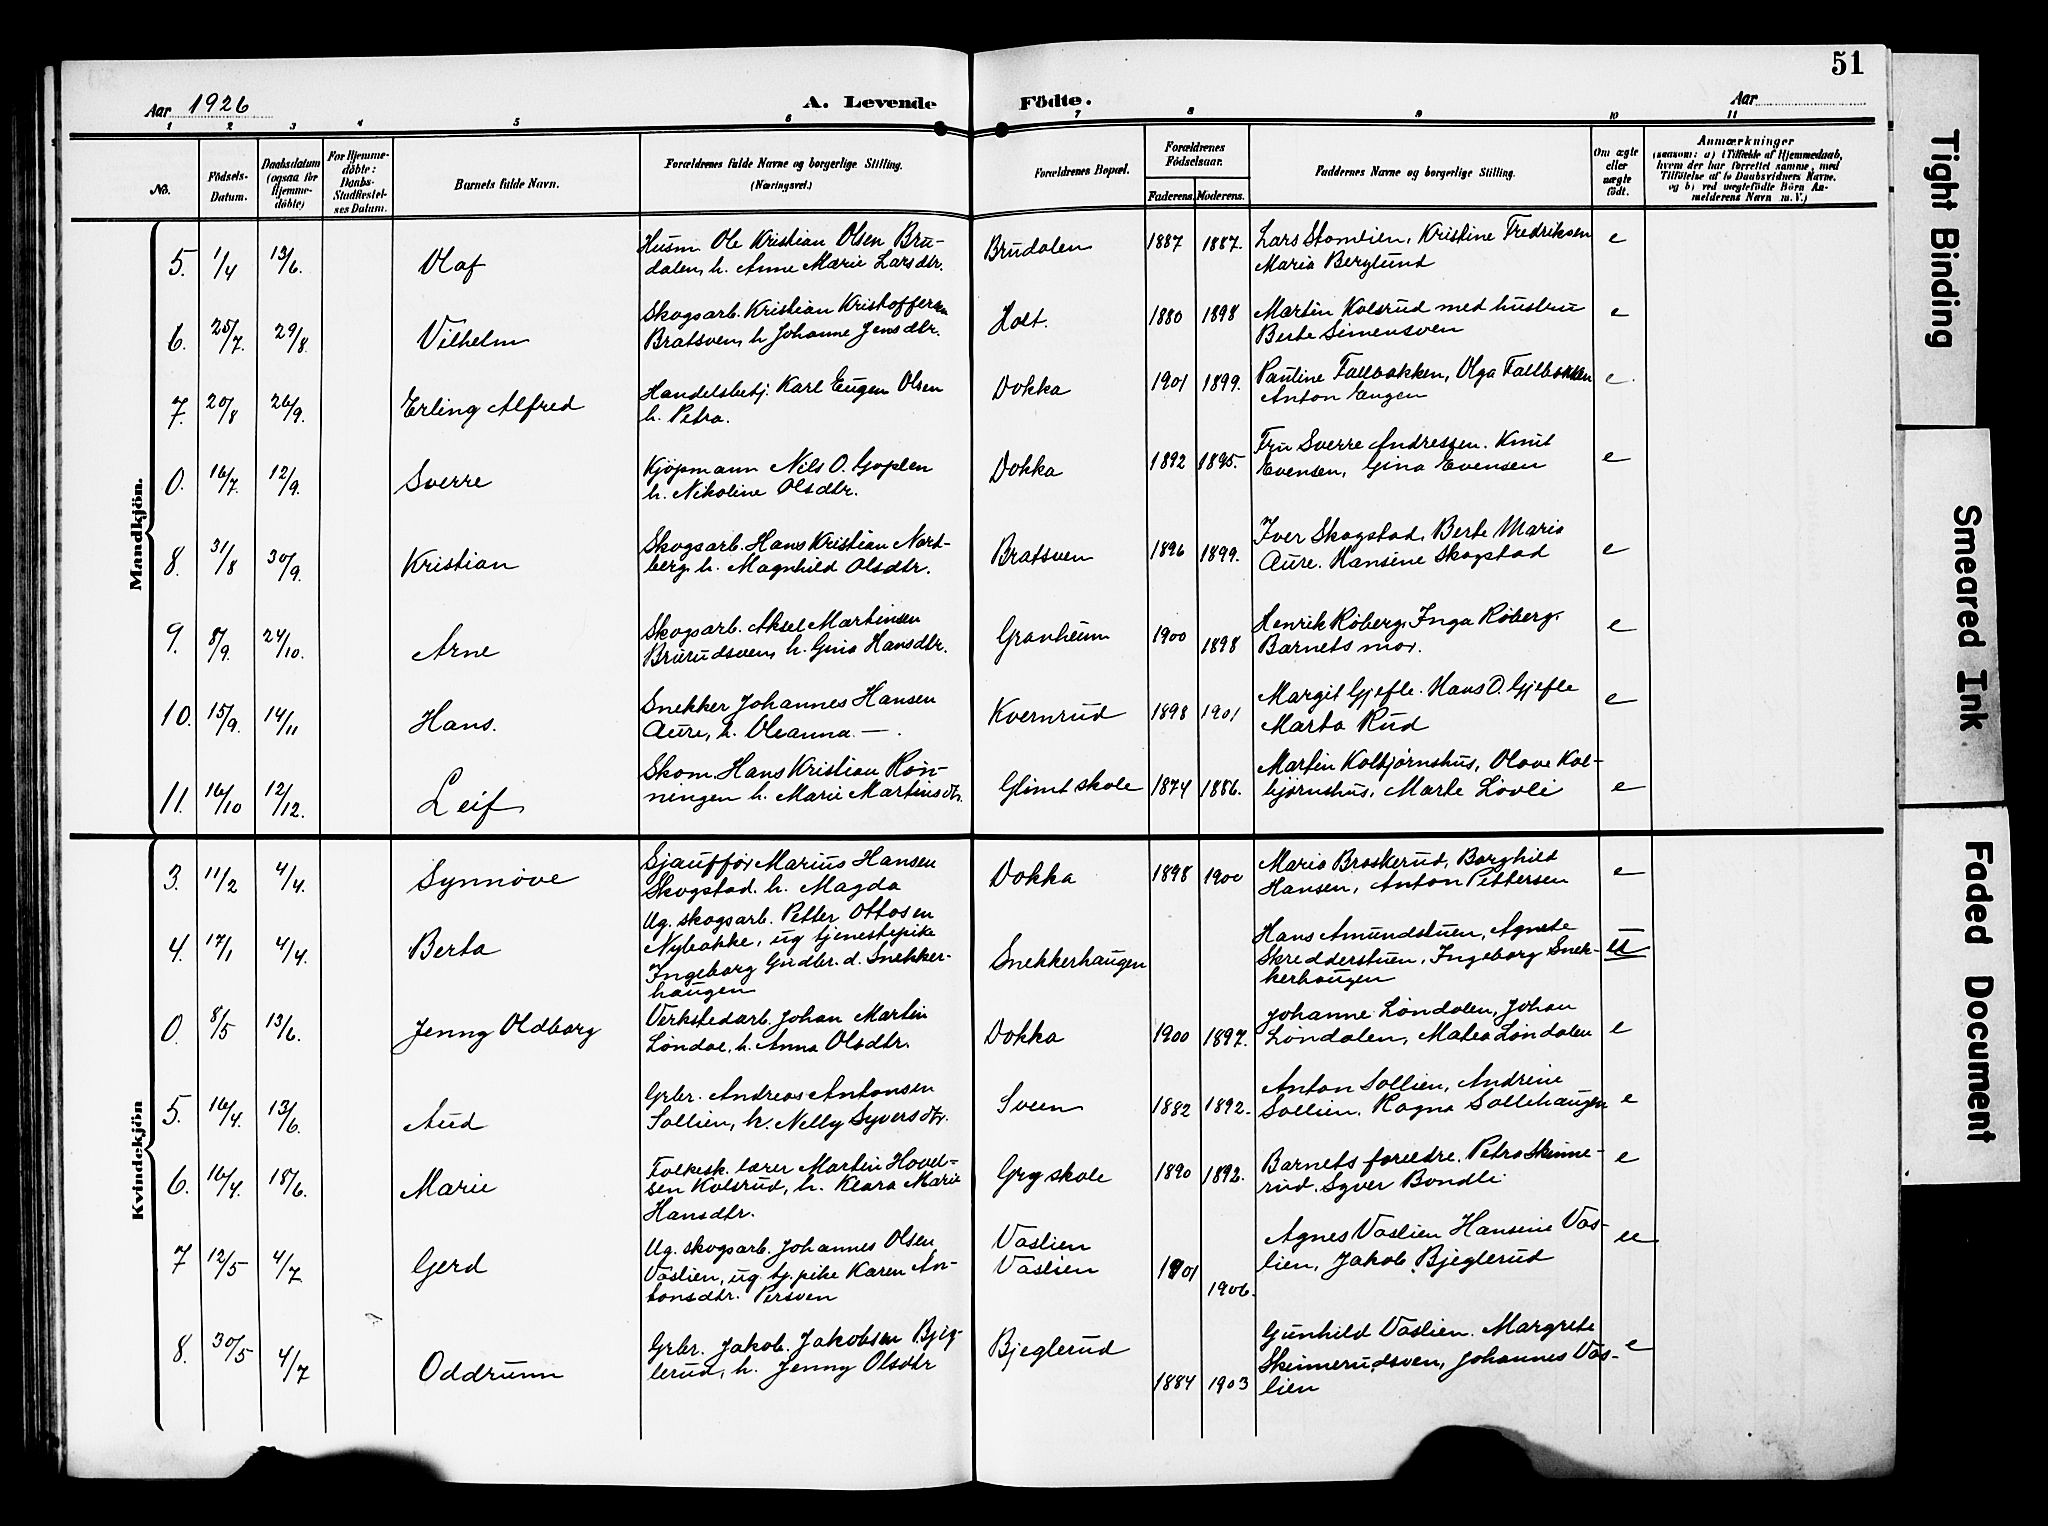 51
Aar 1926
A. Levende Födte.
Aar
1 2 3 4 5 6 7 8 9 10 11
No.
Födsels-
Datum.
Daabsdatum
(ogsaa for
Hjemme-
døbte)
For Hjemme-
döbte:
Daabs-
Stadfæstel-
ses Datum.
Barnets fulde Navn.
Forældrenes fulde Navne og borgerlige Stilling.
(Næringsvei.)
Forældrenes Bopæl.
Forældrenes
Födselsaar.
Faderens. Moderens.
Faddernes Navne og borgerlige Stilling.
Om ægte
eller
uægte
födt.
Anmærkninger
(saasom: a) i Tilfælde af Hjemmedaab,
hvem der har forrettet samme, med
Tilföielse af to Daabsvidners Navne.
og b) ved uægtefödte Börn An-
melderens Navn m. V.)
Mandkjön.
5. 1/4 13/6. Olaf
Husm. Ole Kristian Olsen Bru-
dalen, h. Anne Marie Larsdtr.
Brudalen 1887 1887.
Lars Stomlien, Kristine Fredriksen
Maria Berglund
e
6. 25/7. 29/8. Vilhelm
Skogsarb. Kristian Kristoffersen
Bratsven, h Johanne Jensdtr.
Holt. 1880 1898
Martin Kolsrud med hustru
Berte Simensven
e
7. 20/8 26/9. Erling Alfred
Handelsbetj. Karl Eugen Olsen
h. Petra.
Dokka 1901 1899.
Pauline Fallbakken, Olga Fallbakken
Anton Engen
e.
0. 16/7. 12/9. Sverre
Kjöpmann Nils O. Goplen
h. Nikoline Olsdtr.
Dokka 1892 1895.
Fru Sverre Andressen. Knut
Evensen, Gina Evensen
e
8. 31/8 30/9. Kristian
Skogsarb. Hans Kristian Nord-
berg, h. Magnhild Olsdtr.
Bratsven 1896 1899.
Iver Skogstad, Berte Maria
Aure. Hansine Skogstad
e
9. 8/9. 24/10. Arne
Skogsarb. Aksel Martinsen
Brurudsven, h. Gina Hansdtr.
Granheim 1900 1898
Henrik Röberg, Inga Röberg,
Barnets mor.
e
10. 15/9. 14/11 Hans.
Snekker Johannes Hansen
Aure, h. Oleanna — .
Kvernrud 1898 1901
Margit Gjefle. Hans O. Gjefle
Marta Rud
e
11. 16/10 12/12. Leif
Skom. Hans Kristian Røn-
ningen h. Marie Martinsdtr.
Glimt skole 1874 1886.
Martin Kolbjørnshus, Olave Kol-
bjørnshus, Marte Lövli
e
Kvindekjön
3. 11/2 4/4. Synnöve
Sjaufför Marius Hansen
Skogstad. h. Magda
Dokka 1898 1900
Maria Braskerud, Borghild
Hansen, Anton Pettersen
e
4. 17/1 4/4. Berta
Ug. skogsarb. Petter Ottosen
Nybakke, ug tjenestepike
Ingeborg Gudbr. d. Snekker-
haugen
Snekkerhaugen
Hans Amundstuen, Agnete
Skredderstuen, Ingeborg Snek-
kerhaugen
u
0. 8/5 13/6. Jenny Oldborg
Verkstedarb. Johan Martin
Löndal, h. Anna Olsdtr.
Dokka 1900 1897.
Johanne Löndalen, Johan
Löndalen, Matea Löndalen
e
5. 16/4. 13/6. Aud
Grbr. Andreas Antonsen
Sollien, h. Nelly Syversdtr.
Sveen 1882 1892.
Anton Sollien, Andrine
Sollien. Ragna Sollihaugen
e
6. 16/4. 18/6. Marie
Folkesk. lærer Martin Hovel-
sen Kolsrud, h. Klara Marie
Hansdtr.
Gry skole 1890 1892.
Barnets foreldre. Petra Skinne-
rud. Syver Bondli
e
7 12/5 4/7 Gerd
Ug. skogsarb. Johannes Olsen
Vaslien, ug tj. pike Karen An-
tonsdtr. Persven
Vaslien
Vaslien
1901 1906.
Agnes Vaslien Hansine Vas-
lien, Jakob Bjeglerud
ue
8. 30/5 4/7 Oddrunn
Grbr. Jakob Jakobsen Bjeg-
lerud, h. Jenny Olsdtr
Bjeglerud 1884 1903
Gunhild Vaslien. Margrete
Skinnerudsven, Johannes Vas-
lien
e
Tight Binding
Smeared Ink
Faded Document